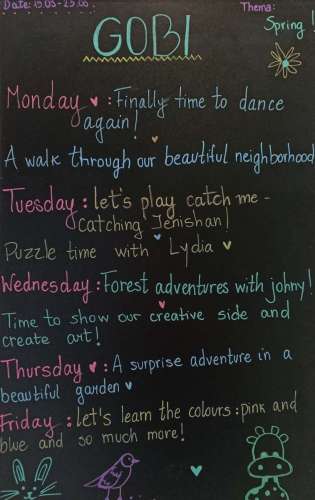 Date: 19.05-23.05.
Thema:
Spring!
GOBI
Monday ♥: Finally time to dance
again!
A walk through our beautiful neighborhood
Tuesday: let's play catch me -
catching Jenishan!
Puzzle time with Lydia ♥
Wednesday: Forest adventures with johny!
Time to show our creative side and
create art!
Thursday ♥: A surprise adventure in a
beautiful garden ♥
Friday: let's learn the colours: pink and
blue and so much more!